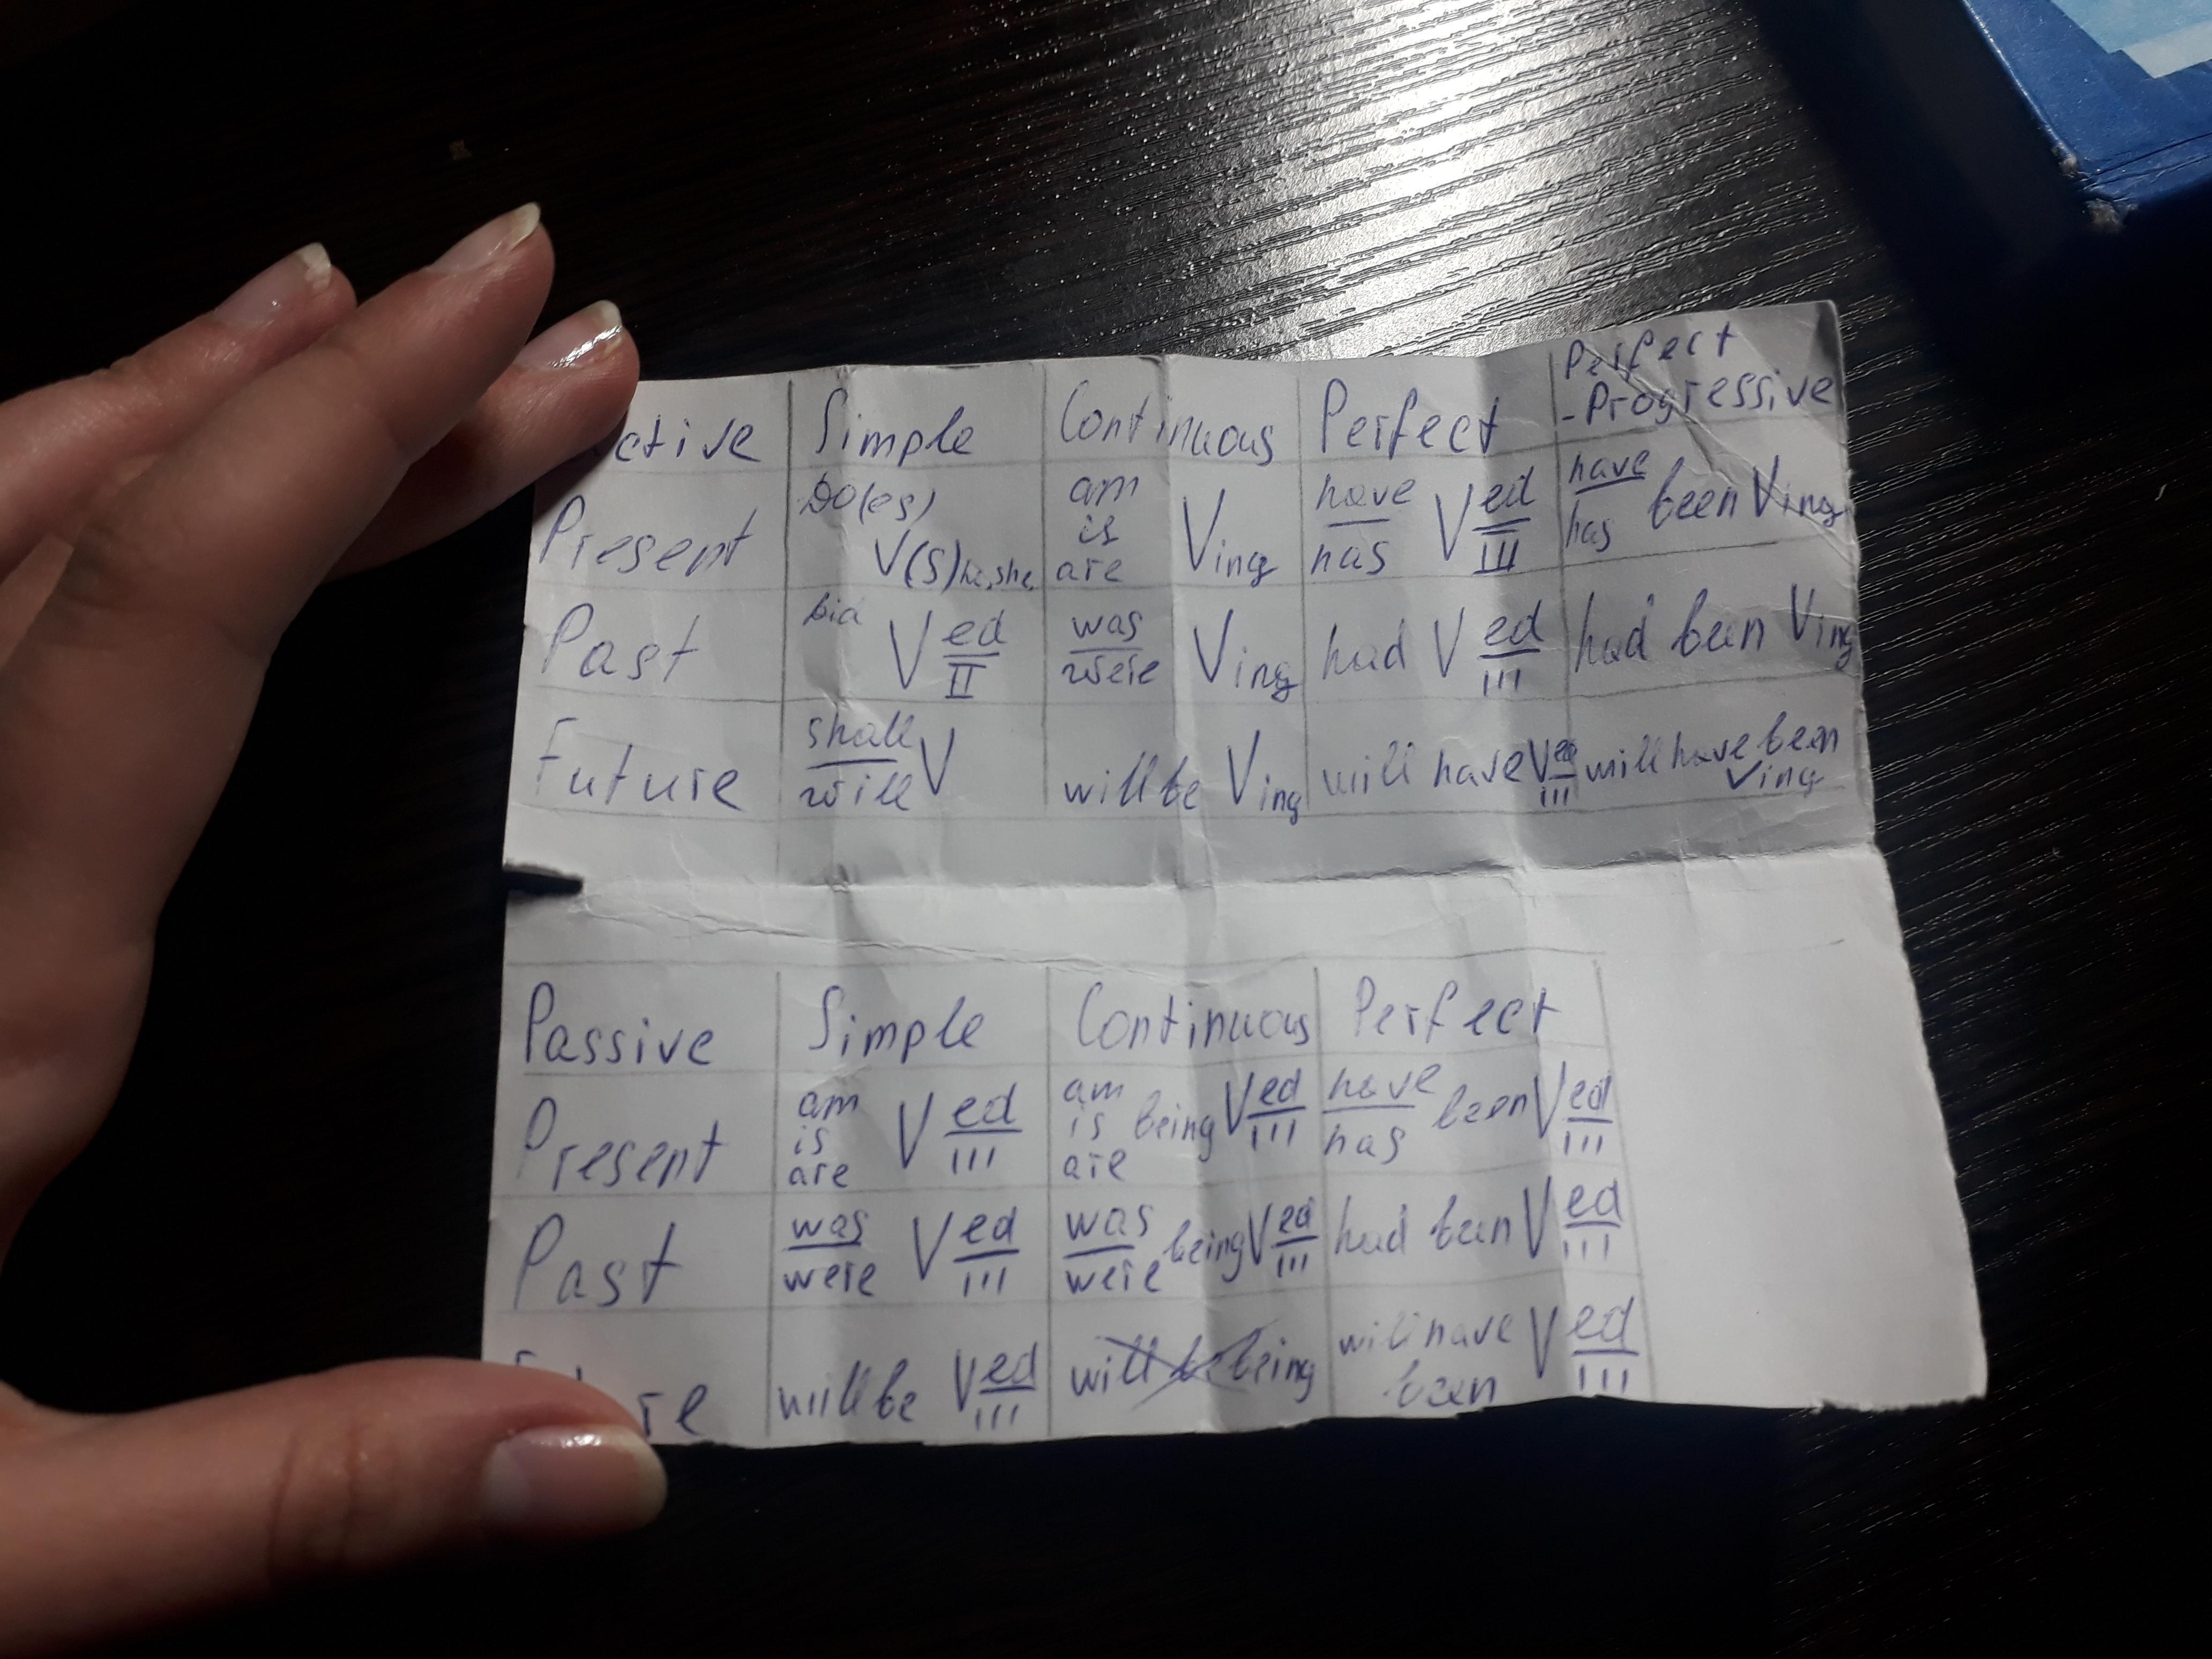 ctive Simple Continuous Perfect Perfect
-Progressive
Present Do(es) V(s) he, she, am is are Ving have/has V ed/III have/has been Ving
Past Did V ed/II was/were Ving had V ed/III had been Ving
Future shall/will V will be Ving will have V ed/III will have been Ving
Passive Simple Continuous Perfect
Present am is are V ed/III am is are being V ed/III have/has been V ed/III
Past was/were V ed/III was/were being V ed/III had been V ed/III
re will be V ed/III will be being will have been V ed/III